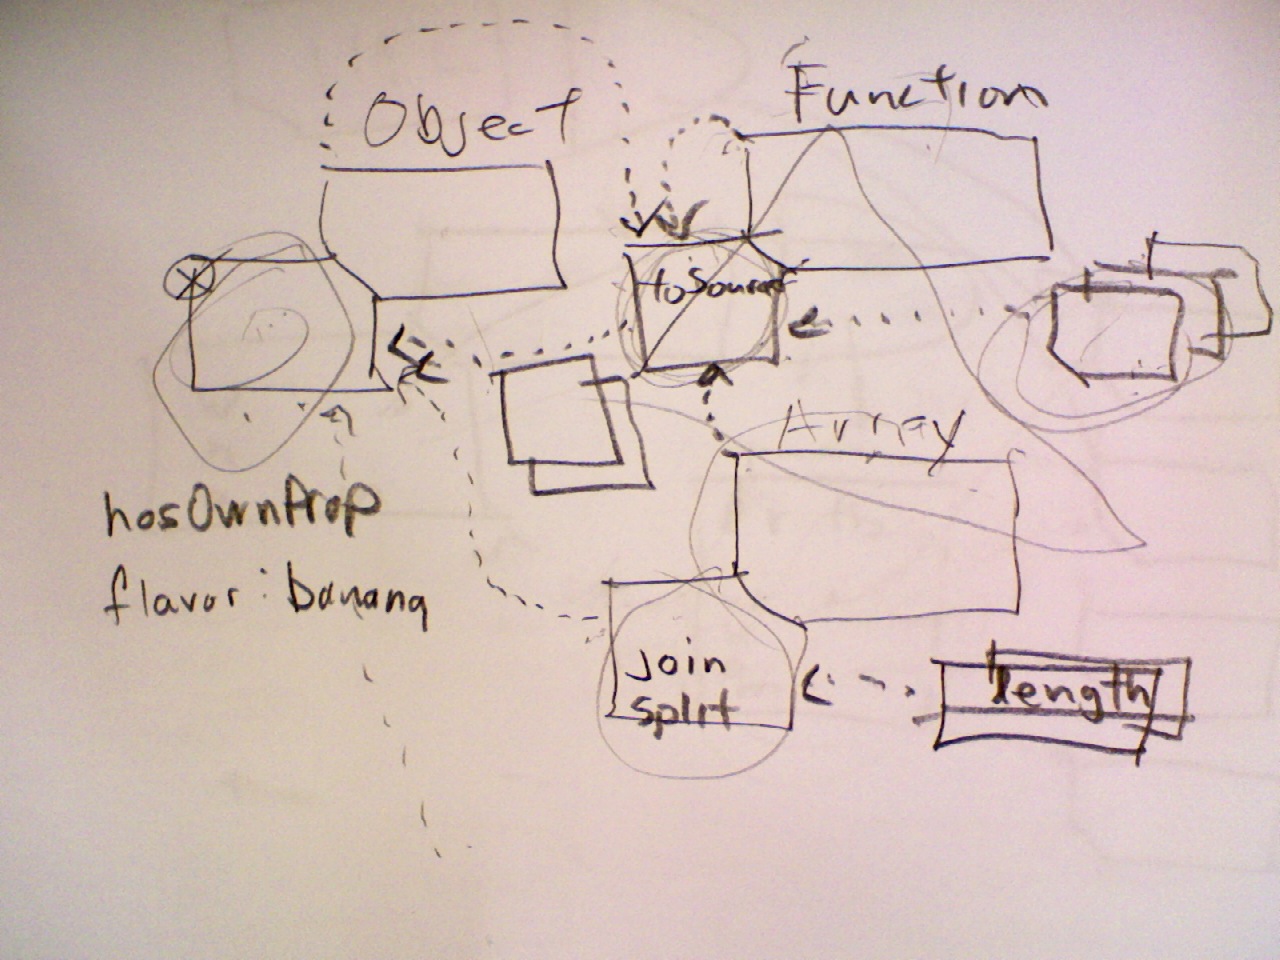 Object
Function
toSource
Array
hasOwnProp
flavor : banana
join
split
length